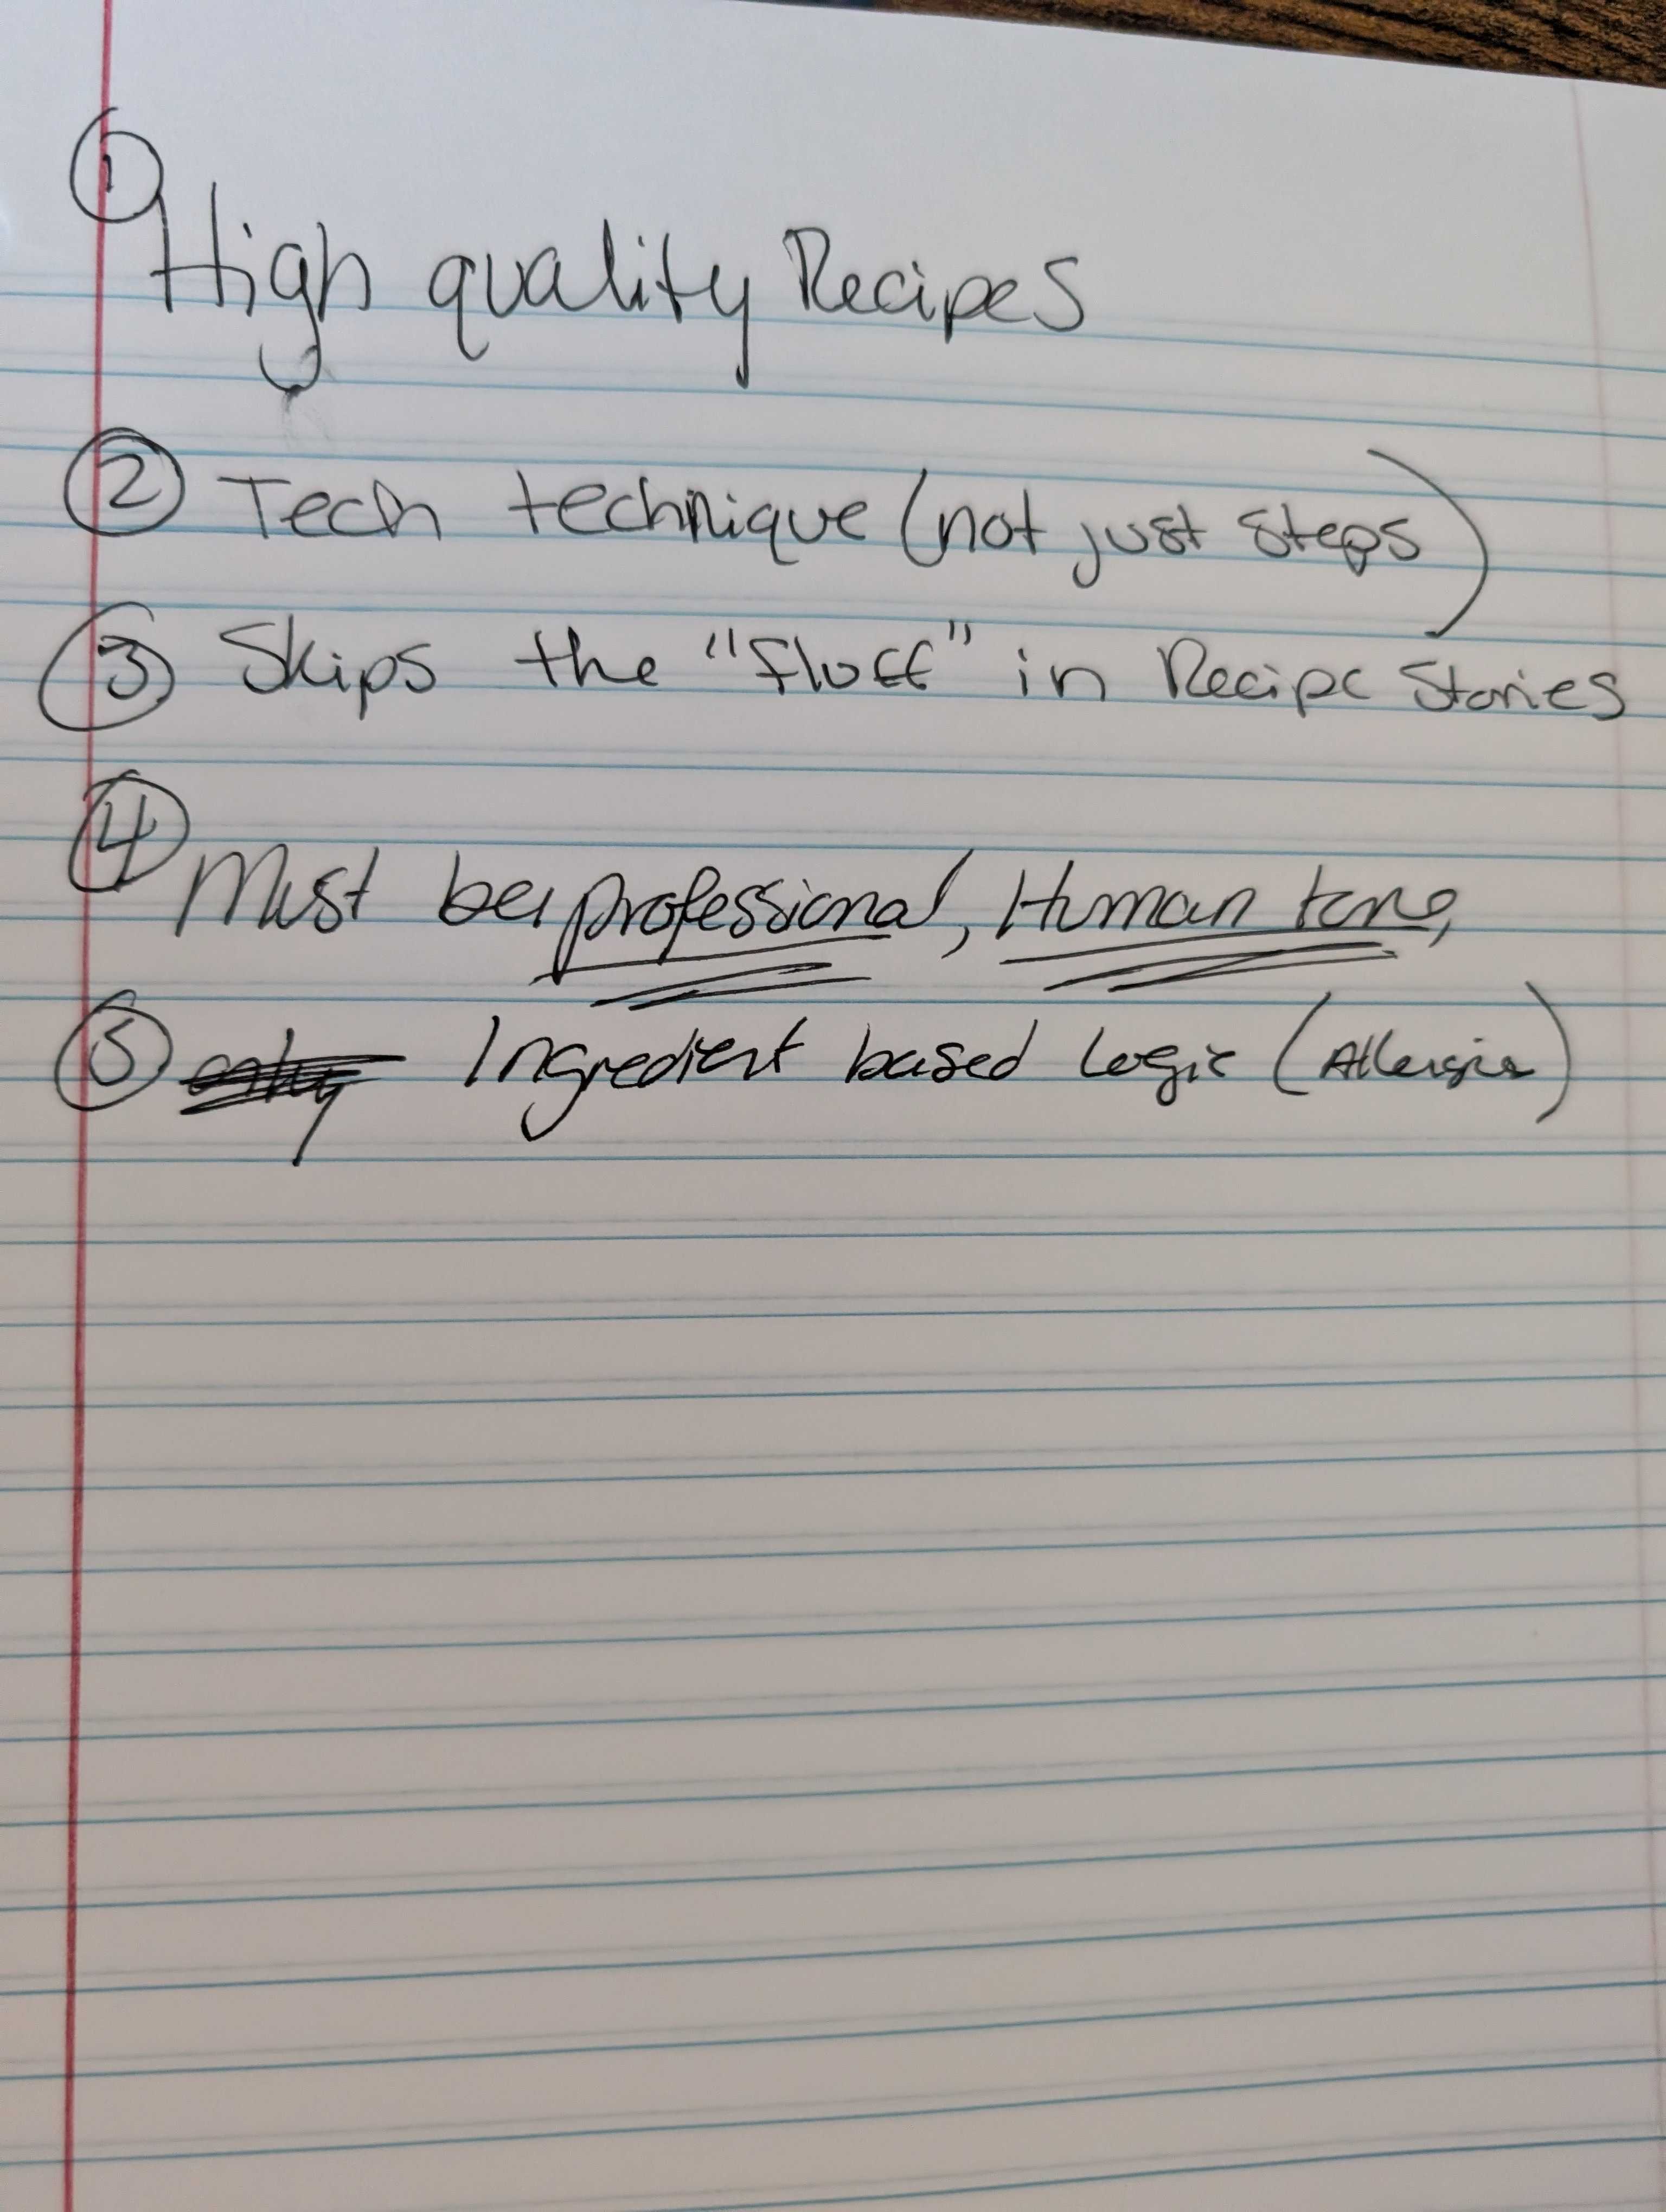 ① High quality Recipes
② Tech technique (not just steps)
③ Skips the "fluff" in Recipe Stories
④ Must be professional, Human tone,
⑤ Ingredient based Logic (Allergies)